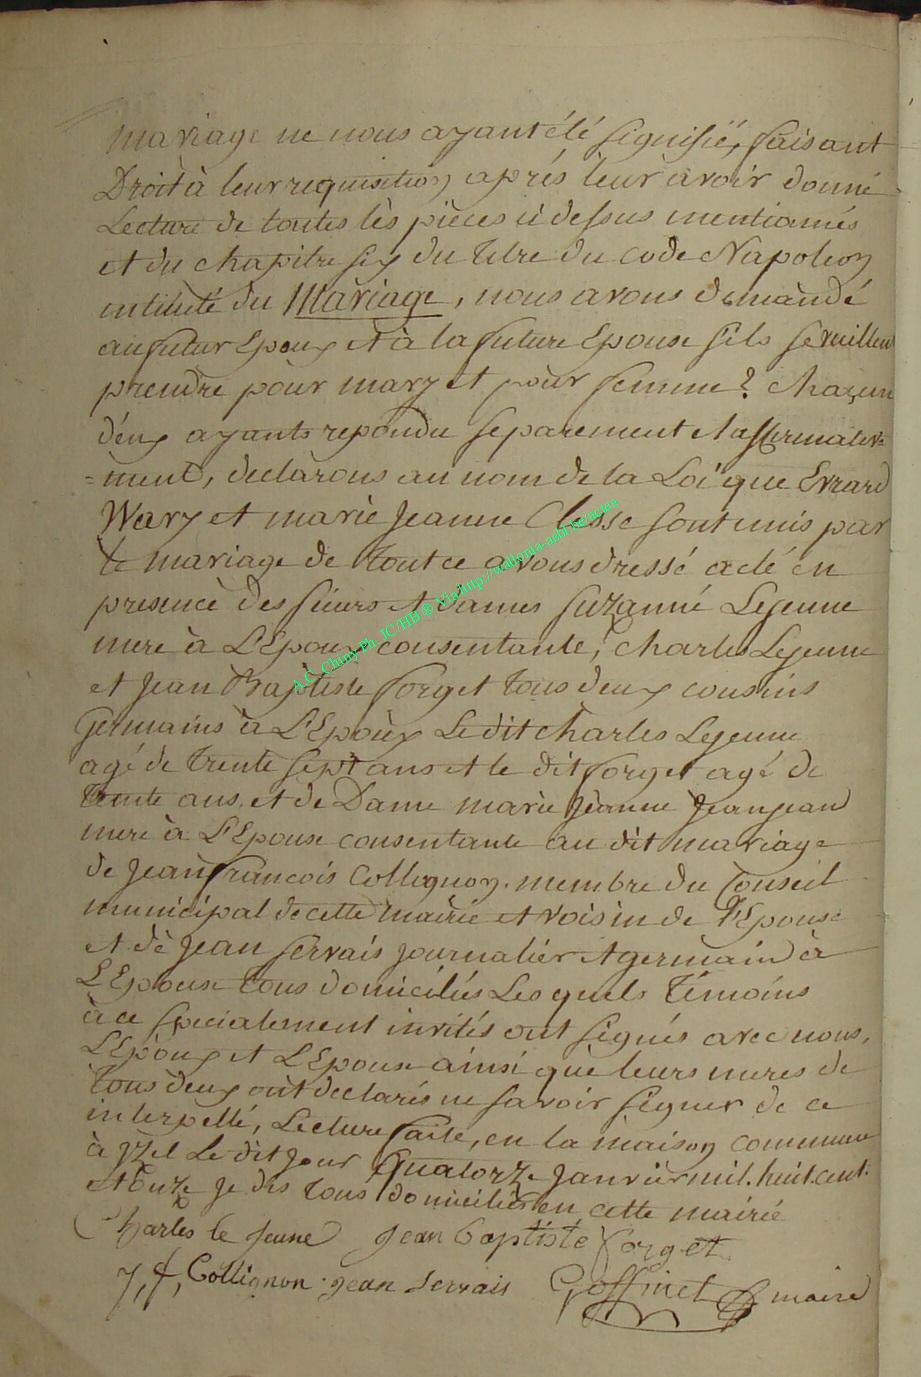 mariage ne nous ayant été signifié, faisant
Droit à leur requisition après leur avoir donné
Lecture de toutes lès pièces ci dessus mentionnés
et du chapitre six du titre du code Napoléon
intitulé du Mariage, nous avons demandé
au futur Epoux et à la future Epouse s'ils se veillent
prendre pour mary et pour femme? chaçun
d'eux ayants repondu separement et affirmative=
=ment, declarons au nom de la Loi que Evrard
Wary et marie Jeanne Classe sont unis par
le mariage de tout ce avons dressé acte en
presence des sieurs et dames Suzanne Lejeune
mere à L'Epoux consentante, Charles Lejeune
et Jean Baptiste forget tous deux cousins
Germains à L'Epoux Le dit Charles Lejeune
agé de trente sept ans et le dit forget agé de
trente ans. et de Dame marie Jeanne Jeanjean
mere à L'Epouse consentante au dit mariage
de Jean francois Collignon. membre du Conseil
municipal de cette mairie et voisin de l'Epouse
et de Jean Servais journalier et germain à
L'Epouse tous domiciliés Les quels Témoins
à ce specialement invités ont signés avec nous,
L'Epoux et L'Epouse ainsi que leurs meres de
tous deux ont declarés ne savoir signer de ce
interpellé, Lecture faite, en la maison commune
à Yzel Le dit jour Quatorze Janvier mil. huit. cent.
et onze je dis tous domiciliés en cette mairie
Charles le jeune Jean baptiste forget
J, f, Collignon. jean servais Goffinet maire
A.C. Chiny Ph. JC/HB © Via http://wallonia-asbl.be/actes